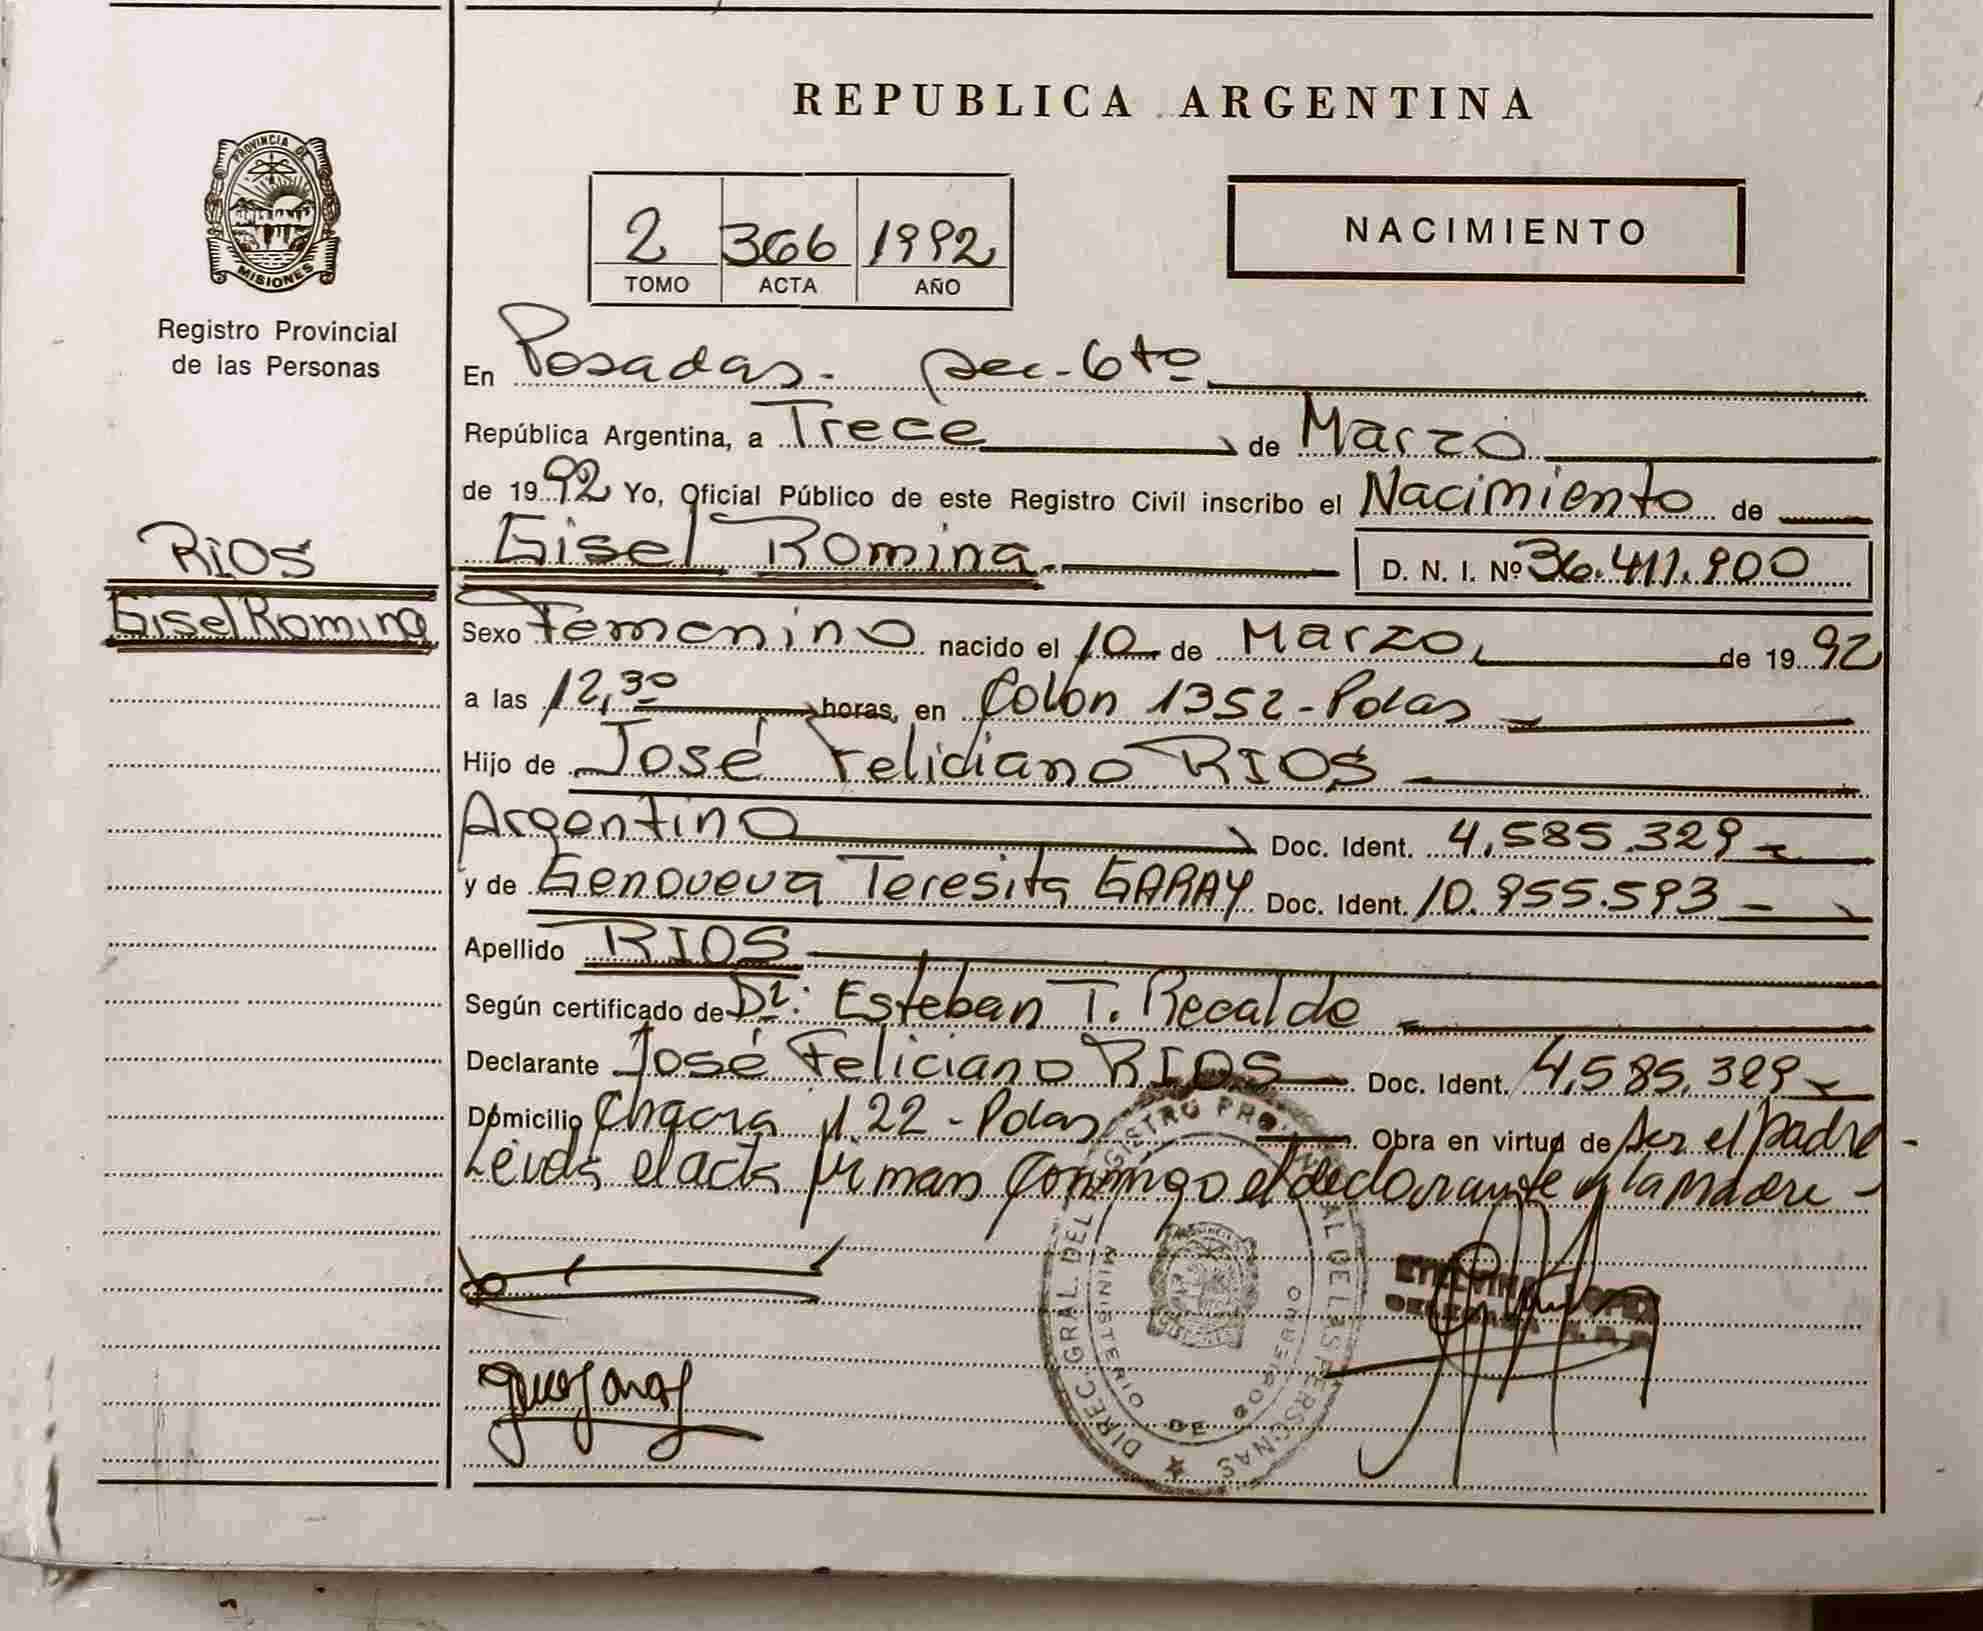 REPUBLICA ARGENTINA
PROVINCIA DE
MISIONES
Registro Provincial
de las Personas
2 366 1992
TOMO ACTA AÑO
NACIMIENTO
En Posadas. sec. 6to
República Argentina, a Trece de Marzo
de 1992 Yo, Oficial Público de este Registro Civil inscribo el Nacimiento de
RIOS
Gisel Romina
Gisel Romina. D. N. I. Nº 36.411.900
Sexo Femenino nacido el 10 de Marzo de 1992
a las 12,30 horas, en Colón 1352 - Pdas
Hijo de José Felidiano RIOS
Argentino Doc. Ident. 4.585.329
y de Genoveva Teresita GARAY Doc. Ident. 10.955.593
Apellido RIOS
Según certificado de Dr: Esteban T. Recalde
Declarante José Feliciano RIOS Doc. Ident. 4.585.329
Domicilio Chacra 122 - Pdas Obra en virtud de ser el padre -
Leida el acta firman conmigo el declarante y la madre -
DIREC. GRAL. DEL REGISTRO PROVINCIAL DE LAS PERSONAS
MINISTERIO DE GOBIERNO